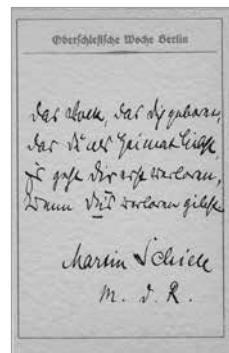 Oberschlesische Woche Berlin
das Volk, das dich geboren,
das Du als Heimat liebst,
Es geht Dir erst verloren,
Wenn Du's verloren gibst.
Martin Schiele
M. d. R.